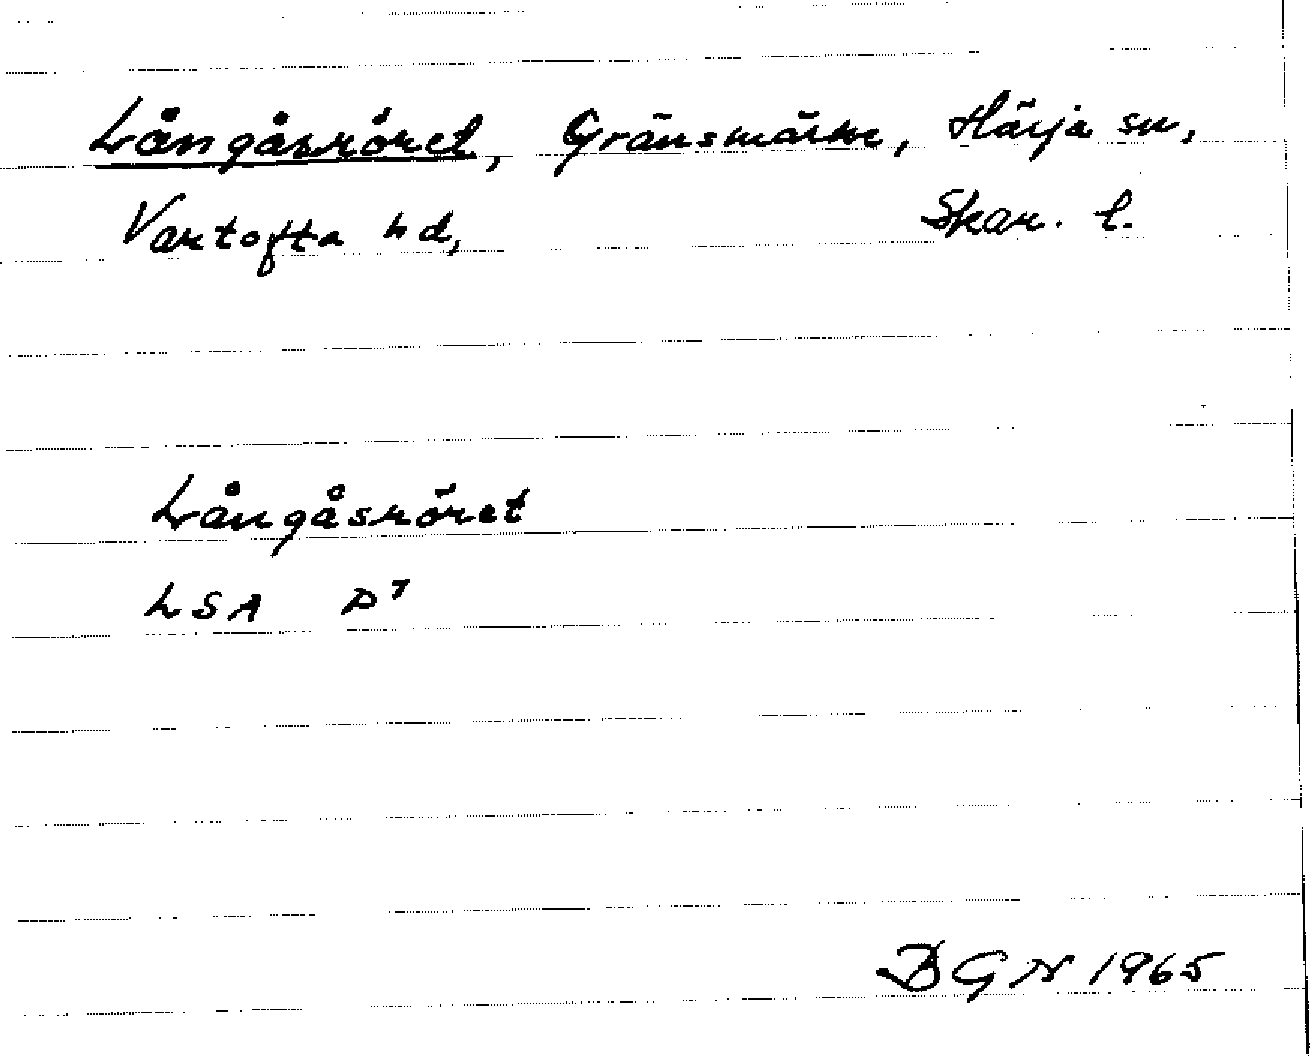 Långåsröret, Gränsmärke, Härja sn,
Vartofta hd, Skar. l.
Långåsröret
LSA D7
BGN 1965